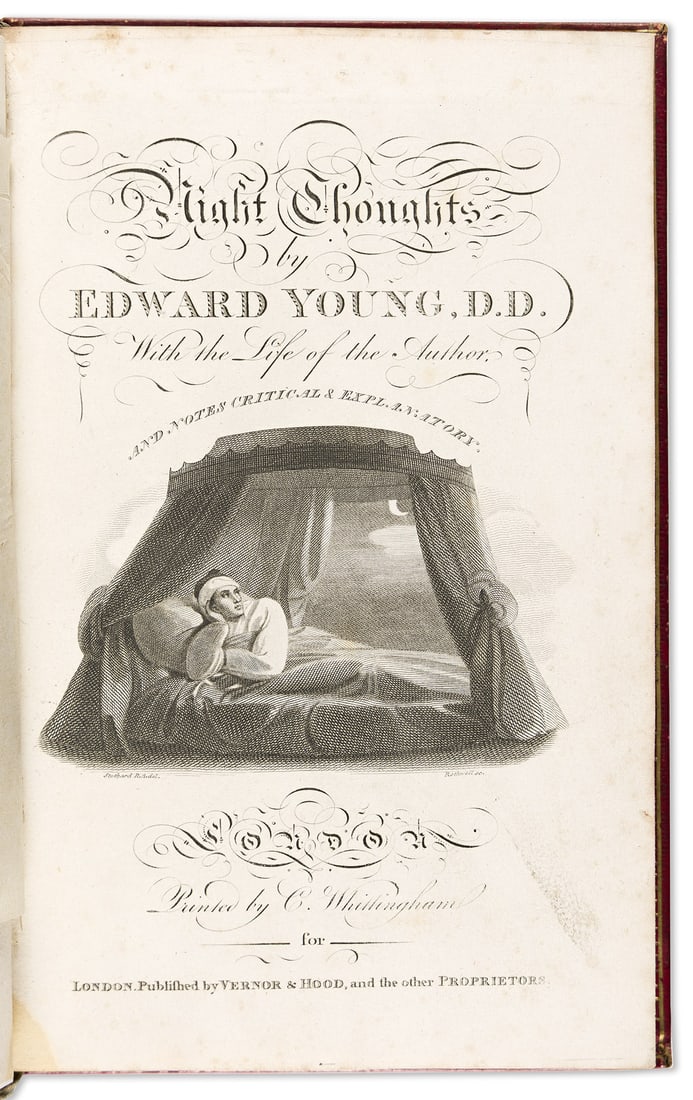 Night Thoughts
by
EDWARD YOUNG, D.D.
With the Life of the Author,
AND NOTES CRITICAL & EXPLANATORY.
Stothard R.A. del.
Rothwell sc.
LONDON
Printed by C. Whittingham
for
LONDON. Publiſhed by VERNOR & HOOD, and the other PROPRIETORS.